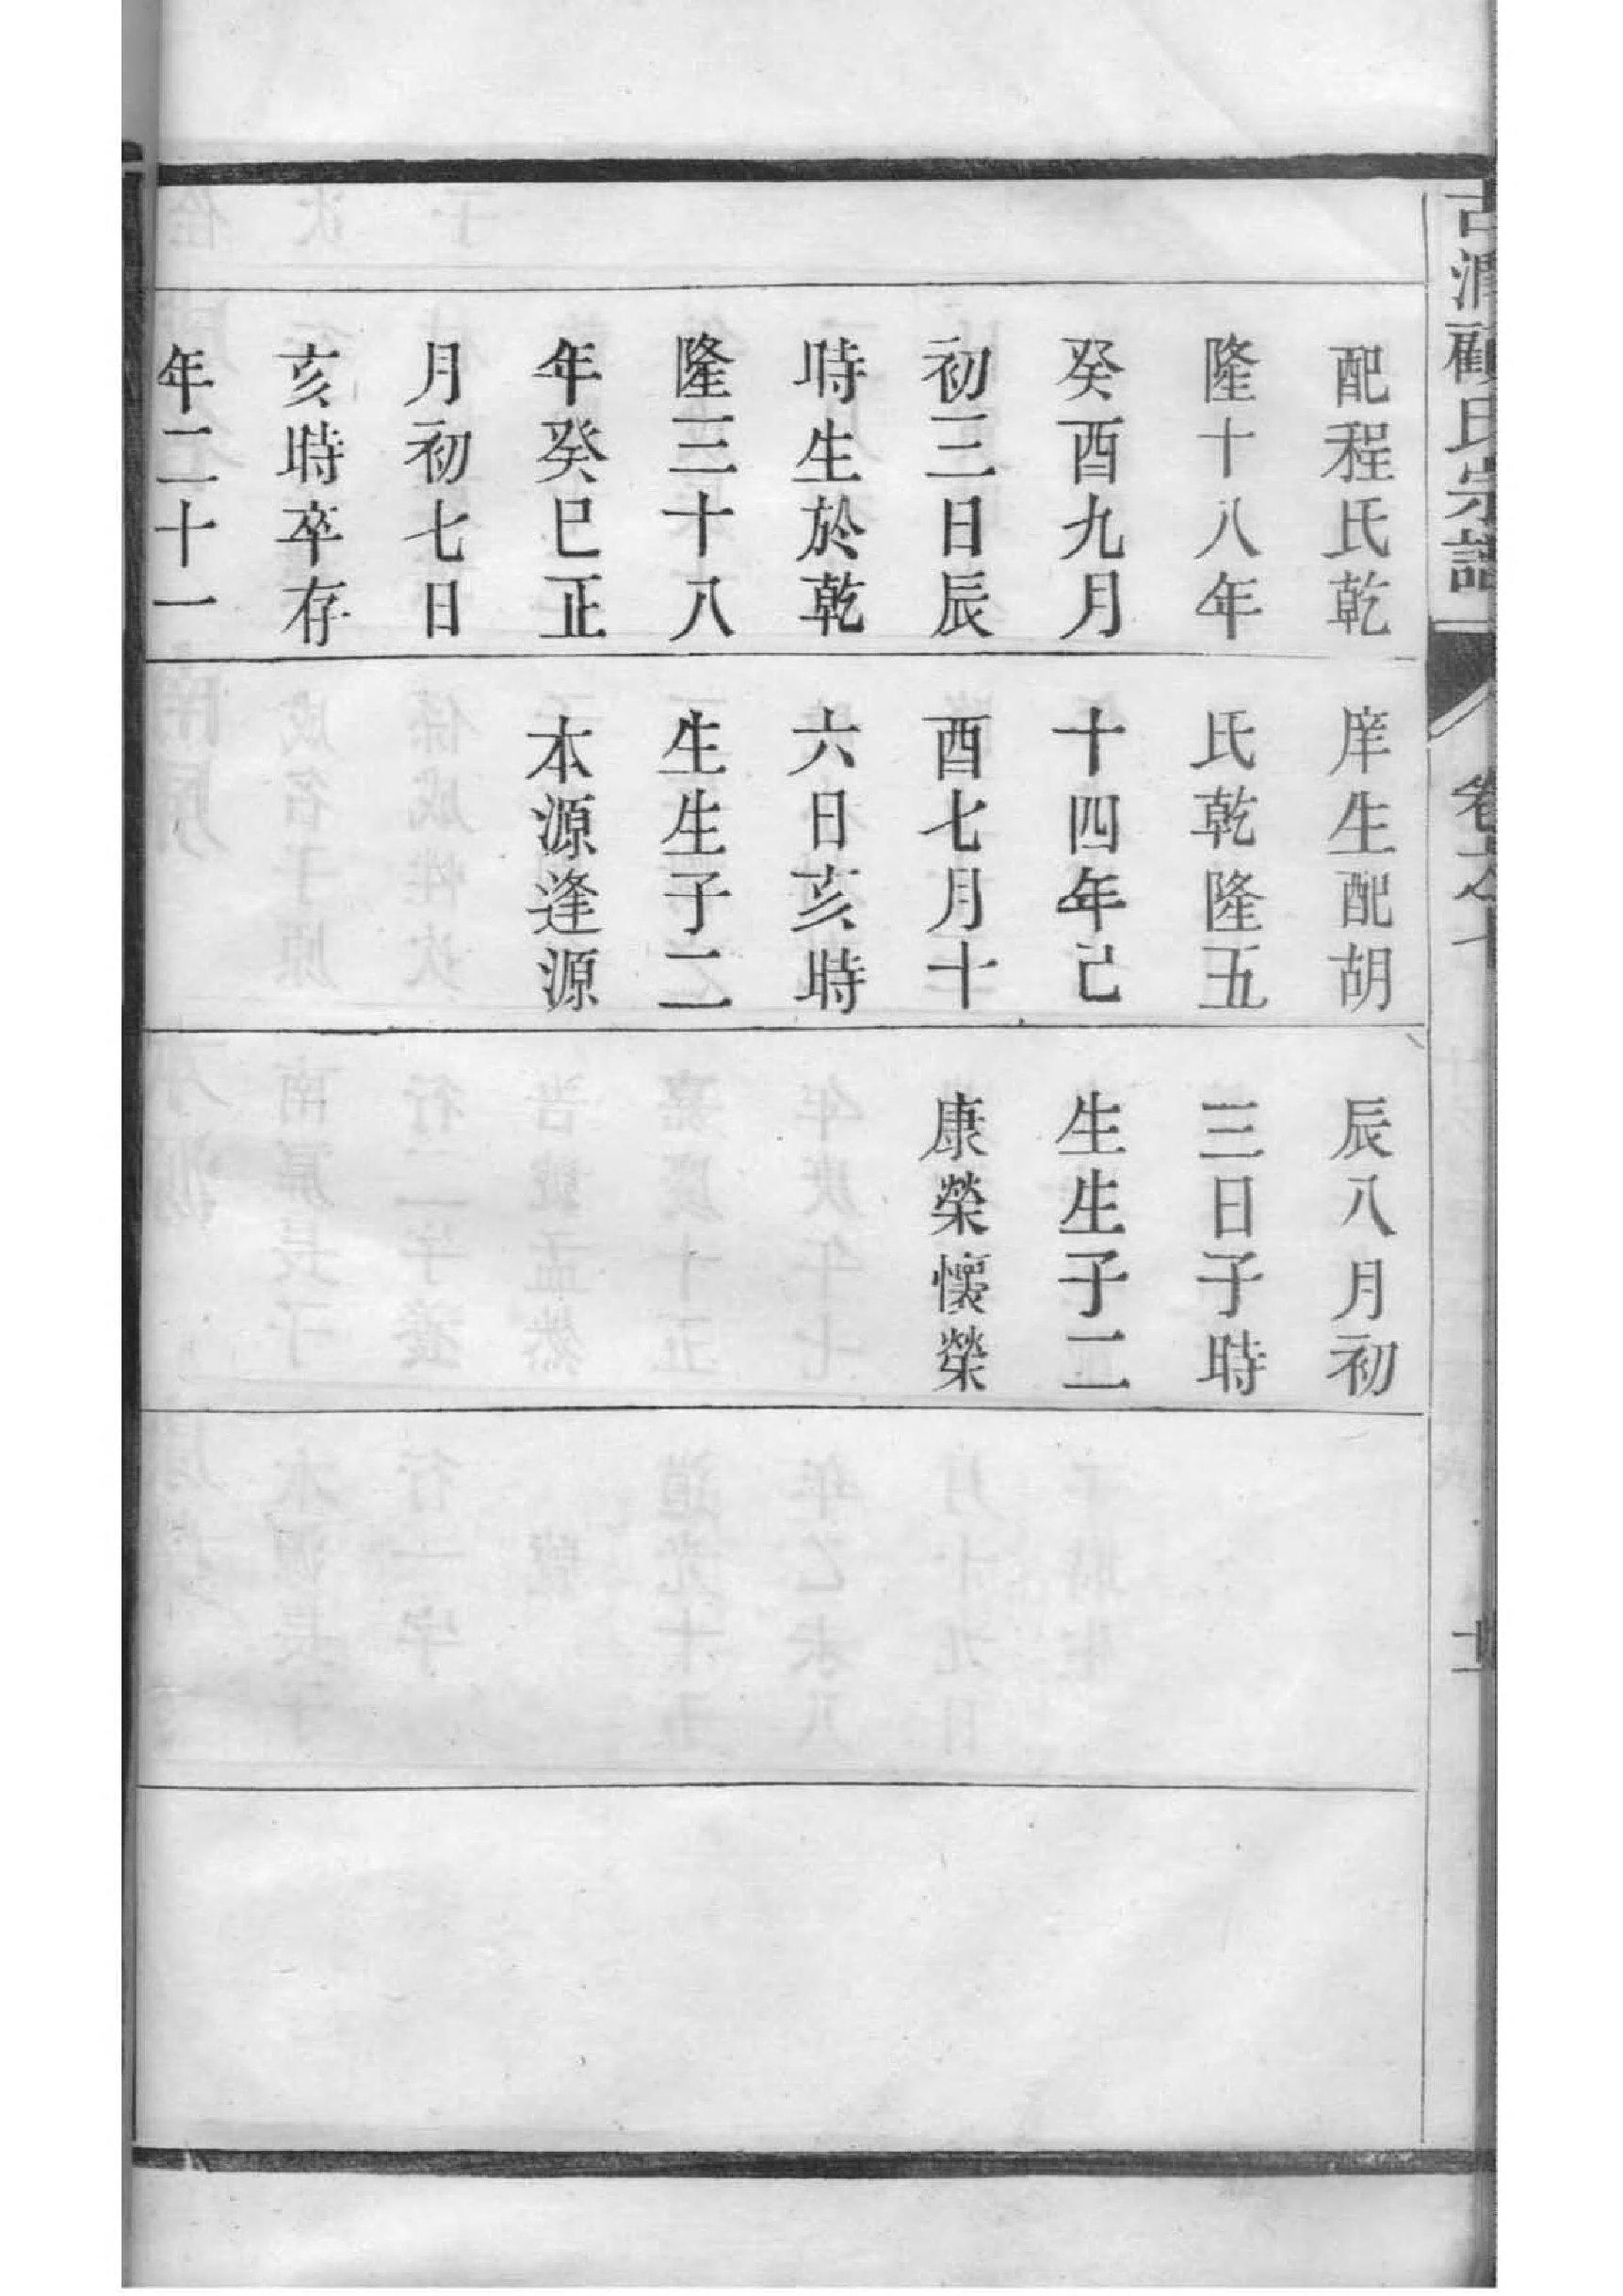 古潤顧氏宗譜
卷之十
配程氏乾
隆十八年
癸酉九月
初三日辰
時生於乾
隆三十八
年癸巳正
月初七日
亥時卒存
年二十一
庠生配胡
氏乾隆五
十四年己
酉七月十
六日亥時
生生子二
本源逢源
辰八月初
三日子時
生生子二
康榮懷榮